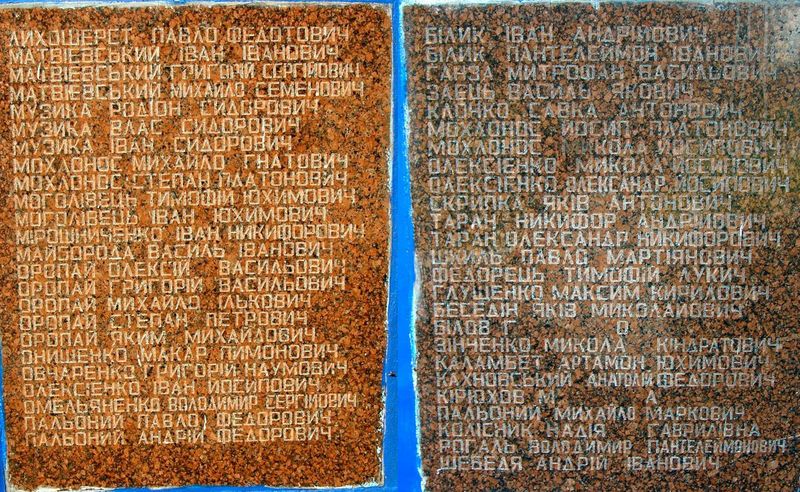 ЛИХОШЕРСТ ПАВЛО ФЕДОТОВИЧ
МАТВІЕВСЬКИЙ ІВАН ІВАНОВИЧ
МАТВІЕВСЬКИЙ ГРИГОРІЙ СЕРГІЙОВИЧ
МАТВІЕВСЬКИЙ МИХАЙЛО СЕМЕНОВИЧ
МУЗИКА РОДІОН СИДОРОВИЧ
МУЗИКА ВЛАС СИДОРОВИЧ
МУЗИКА ІВАН СИДОРОВИЧ
МОХЛОНОС МИХАЙЛО ГНАТОВИЧ
МОХЛОНОС СТЕПАН ПЛАТОНОВИЧ
МОГОЛІВЕЦЬ ТИМОФІЙ ЮХИМОВИЧ
МОГОЛІВЕЦЬ ІВАН ЮХИМОВИЧ
МІРОШНИЧЕНКО ІВАН НИКИФОРОВИЧ
МАЙБОРОДА ВАСИЛЬ ІВАНОВИЧ
ОРОПАЙ ОЛЕКСІЙ ВАСИЛЬОВИЧ
ОРОПАЙ ГРИГОРІЙ ВАСИЛЬОВИЧ
ОРОПАЙ МИХАЙЛО ІЛЬКОВИЧ
ОРОПАЙ СТЕПАН ПЕТРОВИЧ
ОРОПАЙ ЯКИМ МИХАЙЛОВИЧ
ОНИЩЕНКО МАКАР ТИМОНОВИЧ
ОВЧАРЕНКО ГРИГОРІЙ НАУМОВИЧ
ОЛЕКСІЄНКО ІВАН ЙОСИПОВИЧ
ОМЕЛЬЯНЕНКО ВОЛОДИМИР СЕРГІЙОВИЧ
ПАЛЬОНИЙ ПАВЛО ФЕДОРОВИЧ
ПАЛЬОНИЙ АНДРІЙ ФЕДОРОВИЧ
БІЛИК ІВАН АНДРІЙОВИЧ
БІЛИК ПАНТЕЛЕЙМОН ІВАНОВИЧ
ГАНЗА МИТРОФАН ВАСИЛЬОВИЧ
ЗАЕЦЬ ВАСИЛЬ ЯКОВИЧ
КЛОЧКО САВКА АНТОНОВИЧ
МОХЛОНОС ЙОСИП ПЛАТОНОВИЧ
МОХЛОНОС МИКОЛА ЙОСИПОВИЧ
ОЛЕКСІЕНКО МИКОЛА ЙОСИПОВИЧ
ОЛЕКСІЕНКО ОЛЕКСАНДР ЙОСИПОВИЧ
СКРИПКА ЯКІВ АНТОНОВИЧ
ТАРАН НИКИФОР АНДРІЙОВИЧ
ТАРАН ОЛЕКСАНДР НИКИФОРОВИЧ
ШКИЛЬ ПАВЛО МАРТІЯНОВИЧ
ФЕДОРЕЦЬ ТИМОФІЙ ЛУКИЧ
ГЛУЩЕНКО МАКСИМ КИРИЛОВИЧ
БЕСЕДІН ЯКІВ МИКОЛАЙОВИЧ
БІЛОВ Г О
ЗІНЧЕНКО МИКОЛА КІНДРАТОВИЧ
КАЛАМБЕТ АРТАМОН ЮХИМОВИЧ
КАХНОВСЬКИЙ АНАТОЛІЙ ФЕДОРОВИЧ
КІРЮХОВ М А
ПАЛЬОНИЙ МИХАЙЛО МАРКОВИЧ
КОЛІСНИК НАДІЯ ГАВРИЛІВНА
РОГАЛЬ ВОЛОДИМИР ПАНТЕЛЕЙМОНОВИЧ
ШЕБЕДЯ АНДРІЙ ІВАНОВИЧ